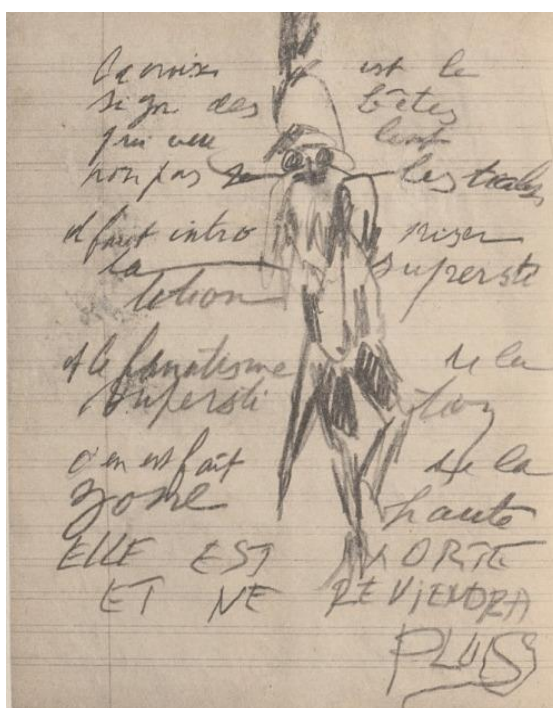 la croix est le
signe des bêtes
qui veu lent
non pas les
il faut intro niser
la superste
tition
et le fanatisme de la
supersti tion
c'en est fait de la
zone haute
ELLE EST MORTE
ET NE REVIENDRA
PLUS